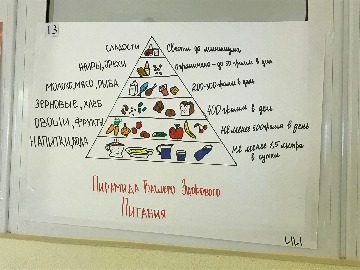 13
СЛАДОСТИ
Свести до минимума
ЖИРЫ, ОРЕХИ
Ограничено - до 30 грамм в день
МОЛОКО, МЯСО, РЫБА
200-300 грамм в день
ЗЕРНОВЫЕ, ХЛЕБ
400 грамм в день
ОВОЩИ, ФРУКТЫ
Не менее 500 грамм в день
НАПИТКИ, ВОДА
Не менее 1,5 литра
в сутки
Пирамида Вашего Здорового
Питания